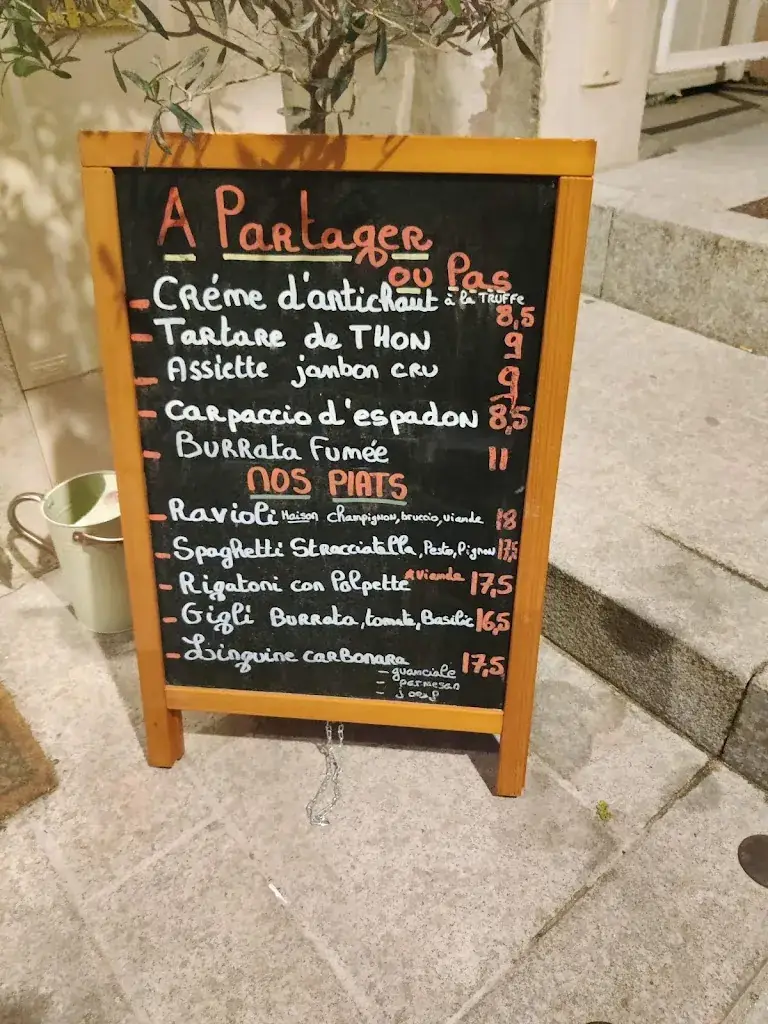 A Partager
ou Pas
- Créme d'artichaut à la TRUFFe 8,5
- Tartare de THON 9
- Assiette jambon CRU 9
- CARPACCIO d'espadon 8,5
- BURRata Fumée 11
NOS PlATS
- Ravioli Maison Champignon, bruccio, viande 18
- Spaghetti Stracciatella, Pesto, Pignon 17,5
- Rigatoni con Polpette viande 17,5
- Gigli BURRata, tomate, Basilic 16,5
- Linguine CARBONARA 17,5
- guanciale
- parmesan
- J oeuf